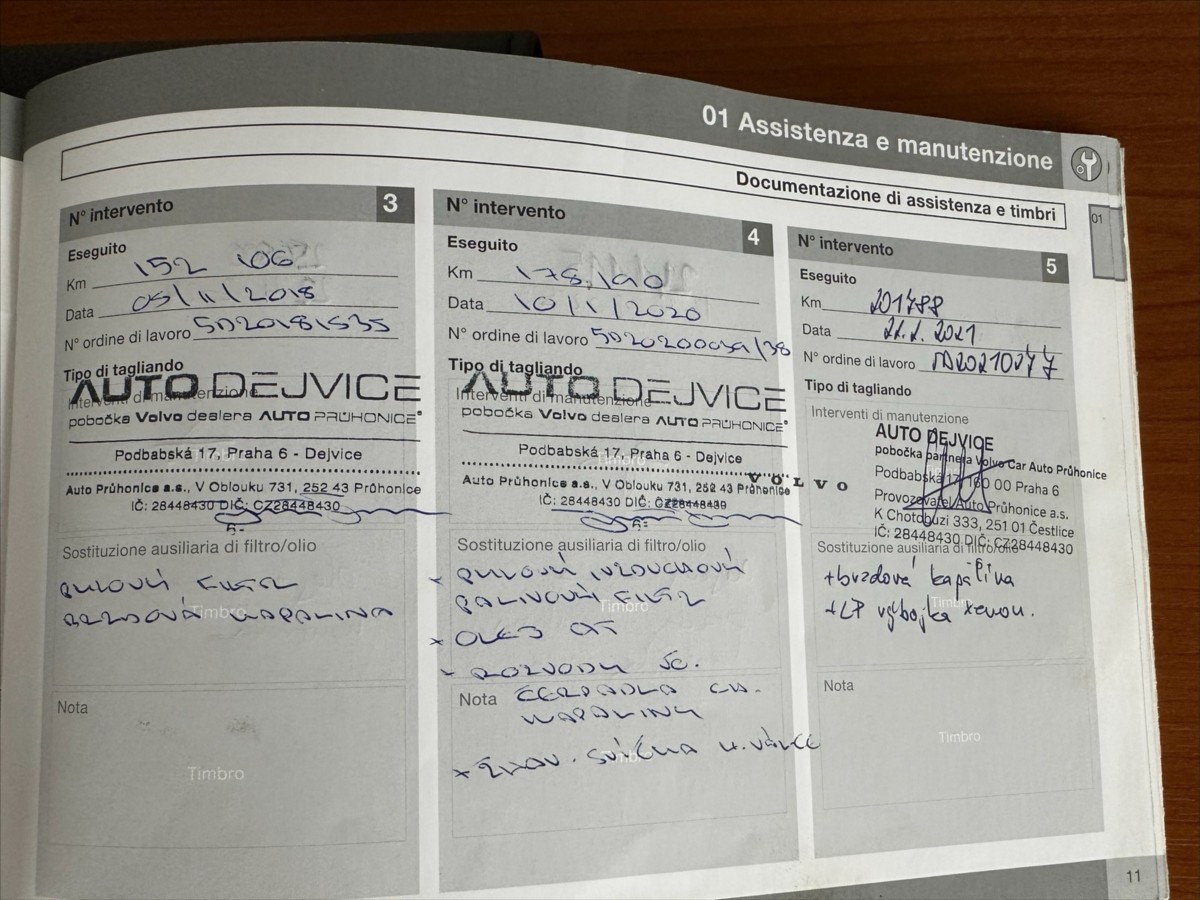 01 Assistenza e manutenzione
Documentazione di assistenza e timbri
01
N° intervento 3
Eseguito
Km 152 106
Data 05/11/2018
N° ordine di lavoro
Tipo di tagliando
Interventi di manutenzione
AUTO DEJVICE
pobočka Volvo dealera AUTO PRŮHONICE
Podbabská 17, Praha 6 - Dejvice
Auto Průhonice a.s., V Oblouku 731, 252 43 Průhonice
IČ: 28448430 DIČ: CZ28448430
Sostituzione ausiliaria di filtro/olio
PYLOVÝ FILTR
BRZDOVÁ KAPALINA
Timbro
Nota
Timbro
N° intervento 4
Eseguito
Km 178.190
Data 10/1/2020
N° ordine di lavoro
Tipo di tagliando
Interventi di manutenzione
AUTO DEJVICE
pobočka Volvo dealera AUTO PRŮHONICE
Podbabská 17, Praha 6 - Dejvice
Timbro
Auto Průhonice a.s., V Oblouku 731, 252 43 Průhonice
IČ: 28448430 DIČ: CZ28448430
Sostituzione ausiliaria di filtro/olio
+ PYLOVÝ VZDUCHOVÝ
PALIVOVÝ FILTR
Timbro
+ OLEJ
- ROZVODY VČ.
Nota ČERPADLA CH.
KAPALINY
+ ŽHAV. SVÍČKA 4. VÁLCE
Timbro
N° intervento 5
Eseguito
Km 201788
Data
N° ordine di lavoro
Tipo di tagliando
Interventi di manutenzione
VOLVO
AUTO DEJVICE
pobočka partnera Volvo Car Auto Průhonice
Podbabská 17, 160 00 Praha 6
Provozovatel Auto Průhonice a.s.
K Chotobuzi 333, 251 01 Čestlice
IČ: 28448430 DIČ: CZ28448430
Sostituzione ausiliaria di filtro/olio
+brzdová kapalina
+LP výbojka xenon.
Timbro
Nota
Timbro
11